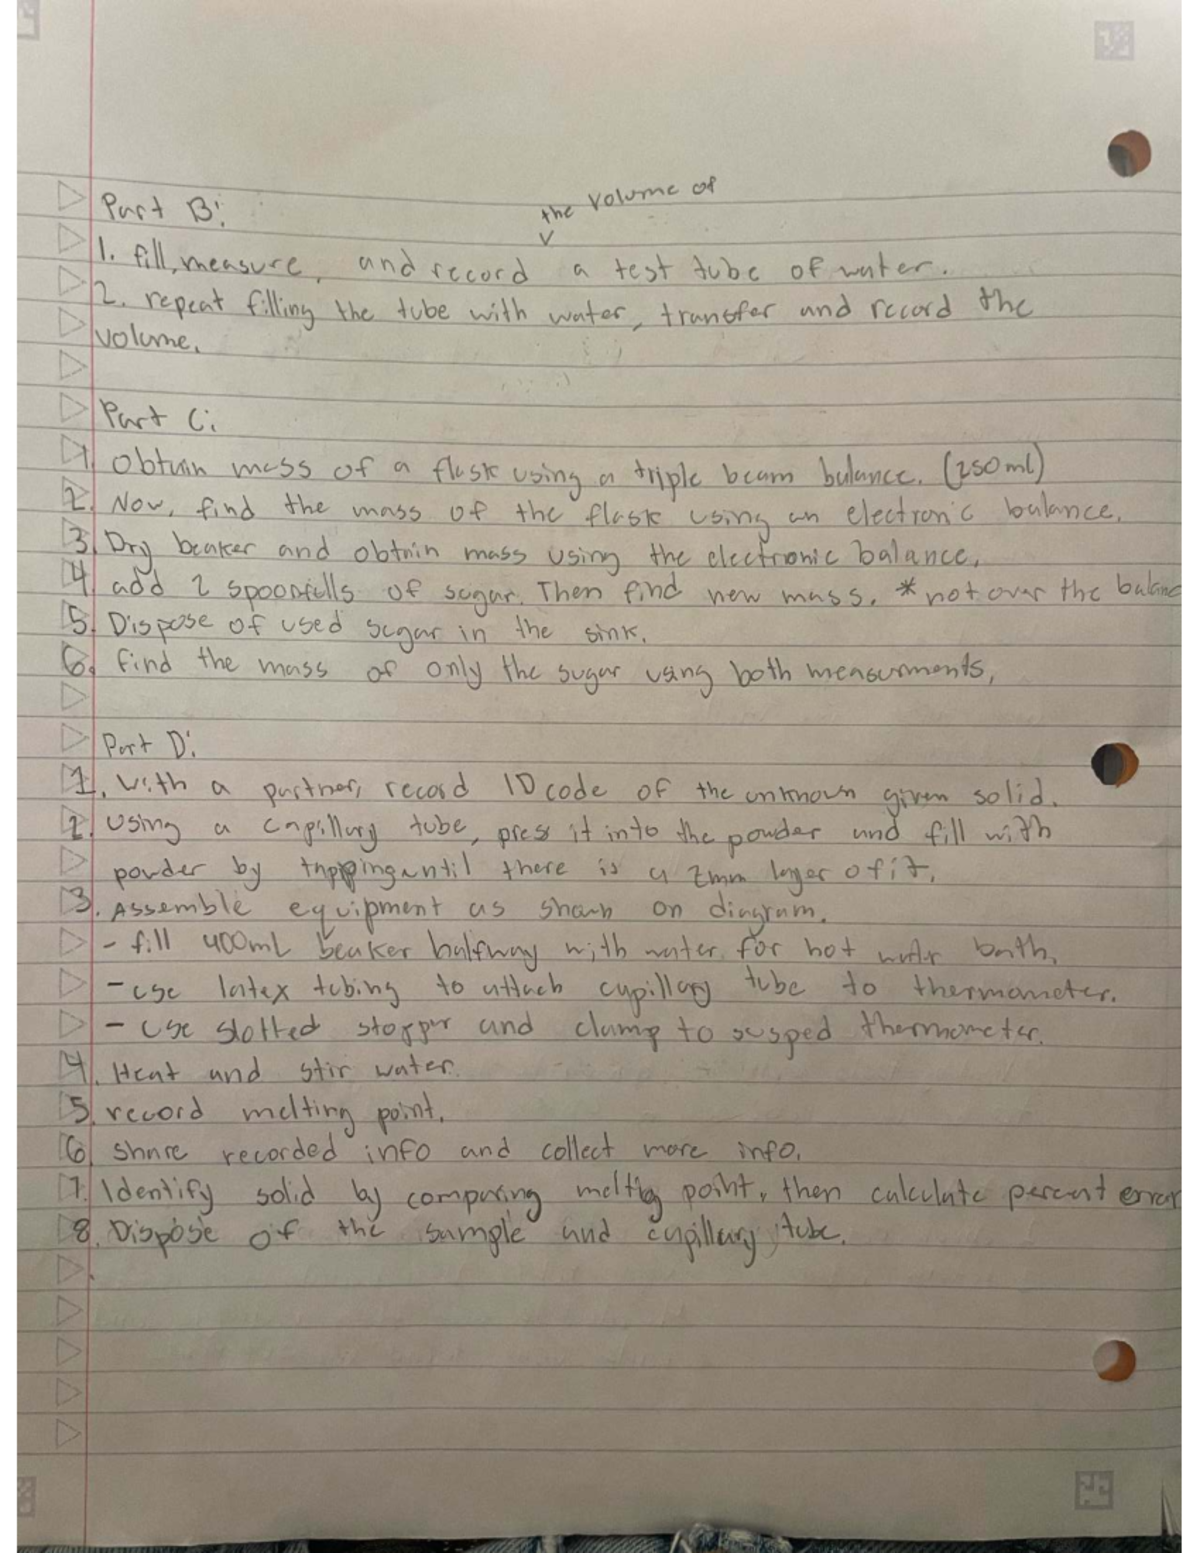 Part B:
the volume of
1. fill, measure, and record a test tube of water.
2. repeat filling the tube with water, transfer and record the
volume.
Part C:
1 Obtain mass of a flask using a triple beam balance. (250ml)
2. Now, find the mass of the flask using an electronic balance.
3. Dry beaker and obtain mass using the electronic balance.
4. add 2 spoonfulls of sugar. Then find new mass. * not over the balanc
5. Dispose of used sugar in the sink.
6. find the mass of only the sugar using both measurments,
Part D:
1. with a partner, record ID code of the unknown given solid.
2. Using a capillary tube, press it into the powder and fill with
powder by tapping until there is a 2mm layer of it.
3. Assemble equipment as shown on diagram.
- fill 400mL beaker halfway with water for hot water bath,
- use latex tubing to attach capillary tube to thermometer.
- use slotted stopper and clamp to susped thermometer.
4. Heat and stir water.
5. record melting point.
6 share recorded info and collect more info.
7. Identify solid by comparing melting point, then calculate percent error
8. Dispose of the sample and capillary tube.